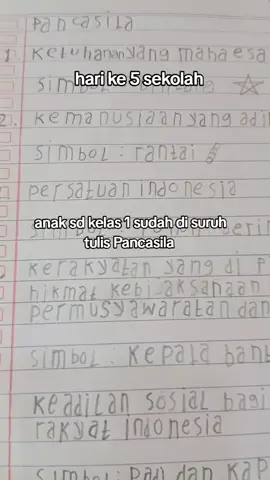 Pancasila
1. Ketuhanan yang maha esa
hari ke 5 sekolah
simbol :
2. Kemanusiaan yang adil
simbol : rantai
persatuan indonesia
anak sd kelas 1 sudah di suruh
tulis Pancasila
kerakyatan yang di P
hikmat kebijaksanaan
permusyawaratan dan
simbol : kepala bant
keadilan sosial bagi
rakyat indonesia
simbol : Padi dan Kap